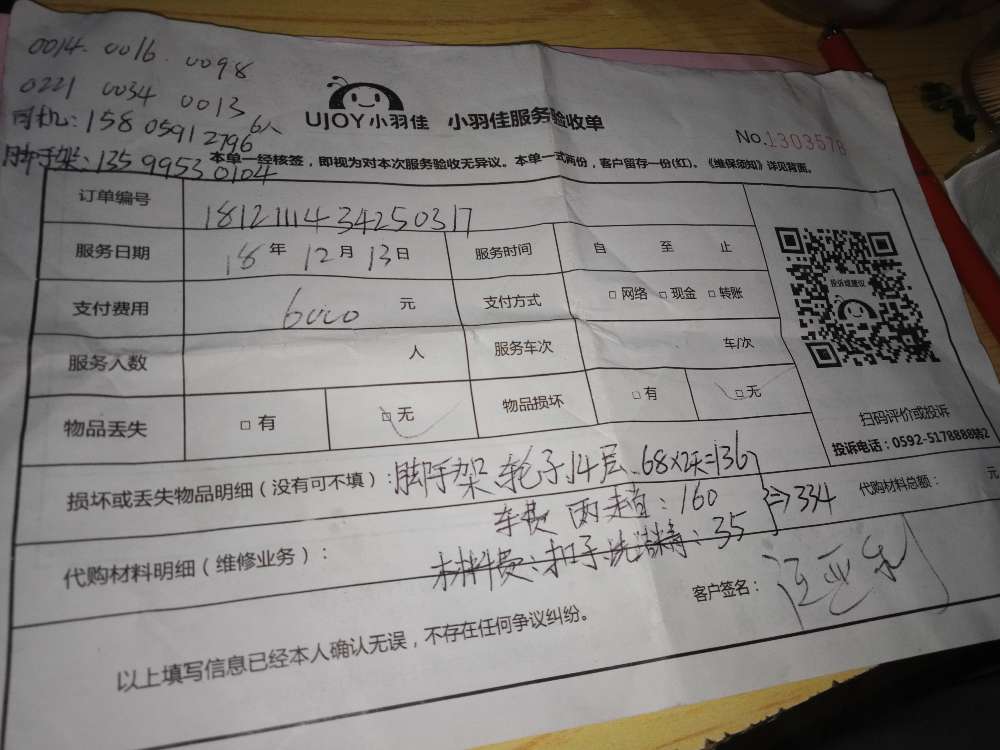 0014. 0016. 0098
0221 0034 0013 6人
司机: 15805912796
脚手架: 13599530104
UJOY 小羽佳 小羽佳服务验收单
No.1303578
本单一经核签，即视为对本次服务验收无异议。本单一式两份，客户留存一份(红)。《维保须知》详见背面。
订单编号 1812111434250317
服务日期 18年 12月 13日 服务时间 自 至 止
支付费用 6000 元 支付方式 □网络 □现金 □转账
投诉或建议
服务人数 人 服务车次 车/次
物品丢失 □有 □无 物品损坏 □有 □无
扫码评价或投诉
投诉电话：0592-5178888转2
损坏或丢失物品明细（没有可不填）: 脚手架 轮子 14层 68×2天=136
车费 两趟: 160 }⇒334 代购材料总额： 元
代购材料明细（维修业务）： 材料费: 扣子 洗洁精: 35
客户签名：
以上填写信息已经本人确认无误，不存在任何争议纠纷。